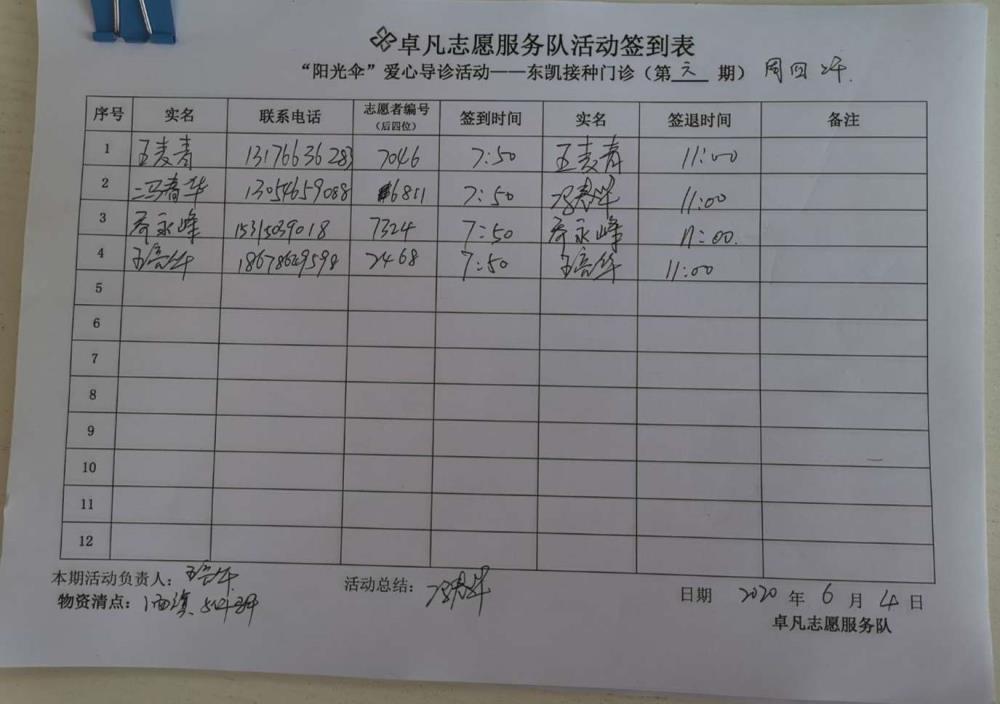 卓凡志愿服务队活动签到表
“阳光伞”爱心导诊活动——东凯接种门诊（第 期） 周四
序号 实名 联系电话 志愿者编号（后四位） 签到时间 实名 签退时间 备注
1 王麦青 13176636283 7046 7:50 王麦青 11:00
2 冯春华 13054659088 6811 7:50 冯春华 11:00
3 乔永峰 15315039018 7324 7:50 乔永峰 11:00
4 18678629598 2468 7:50 11:00
5
6
7
8
9
10
11
12
本期活动负责人： 活动总结：冯春华 日期 2020 年 6 月 4 日
物资清点：
卓凡志愿服务队